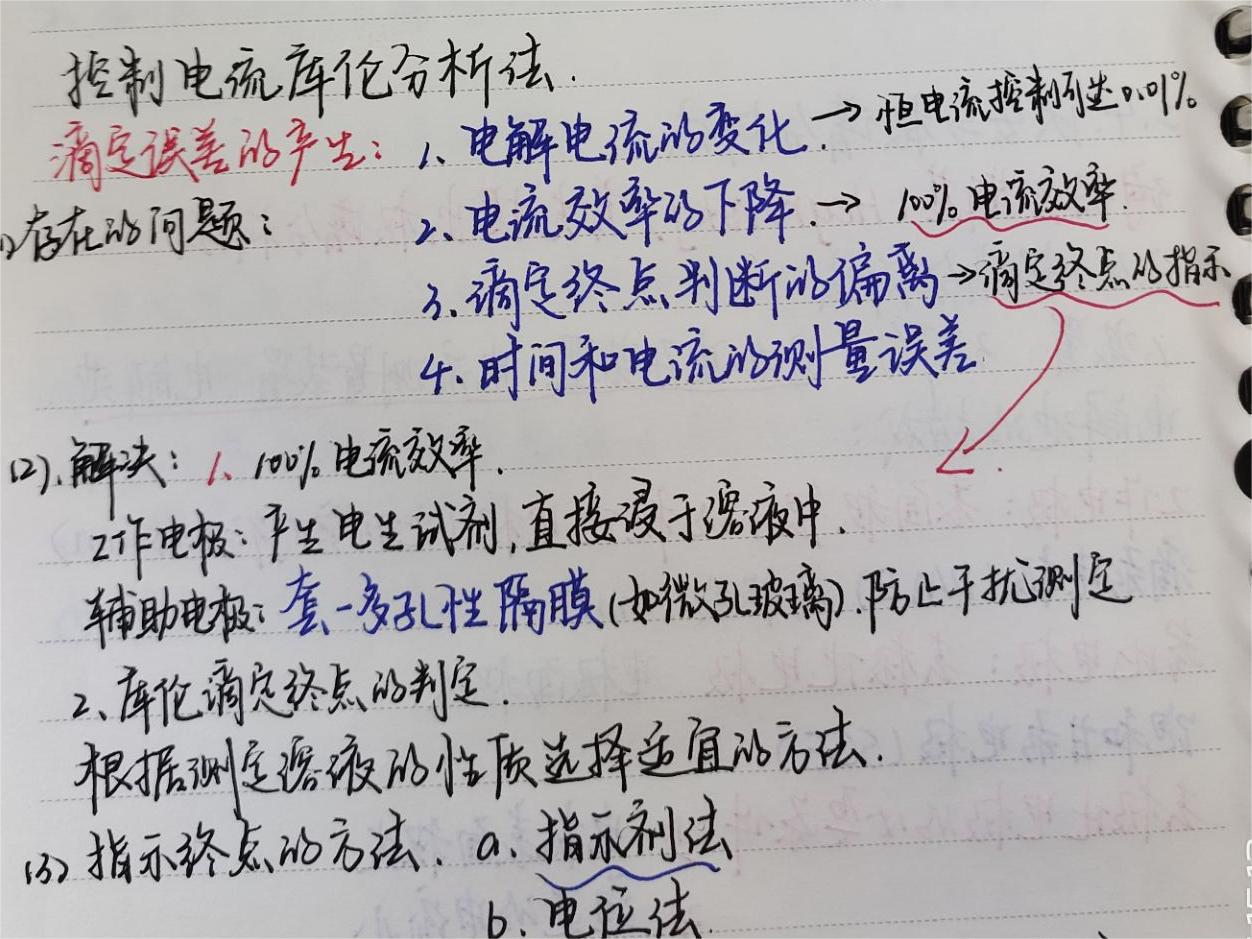 控制电流库伦分析法.
滴定误差的产生: 1、电解电流的变化. → 恒电流控制可达0.01%
(1)存在的问题: 2、电流效率的下降 → 100%电流效率.
3、滴定终点判断的偏离 → 滴定终点的指示
4、时间和电流的测量误差
(2).解决: 1、100%电流效率.
工作电极: 产生电生试剂,直接浸于溶液中.
辅助电极: 套一多孔性隔膜(如微孔玻璃).防止干扰测定
2、库伦滴定终点的判定.
根据测定溶液的性质选择适宜的方法.
(3)指示终点的方法. a.指示剂法
b.电位法.